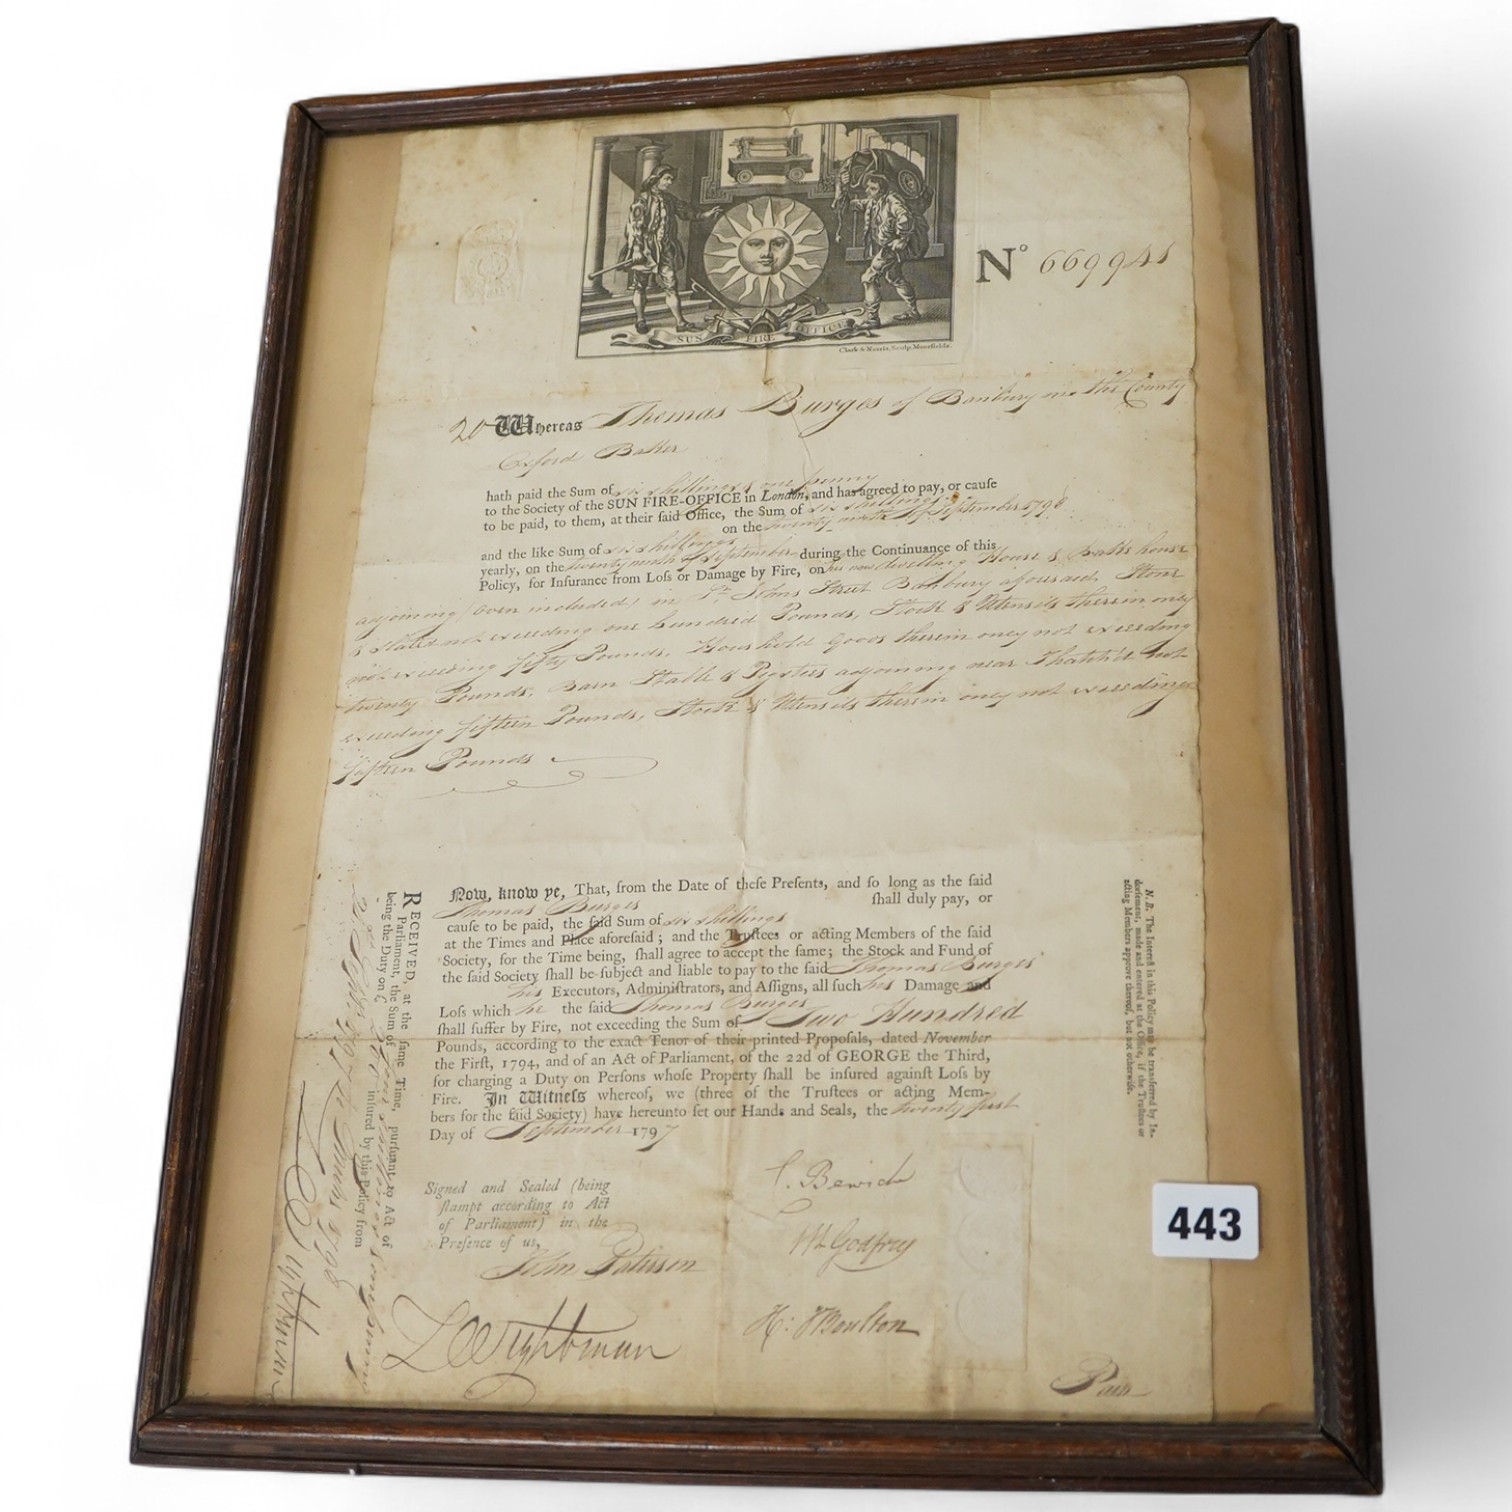 SUN FIRE OFFICE
Clark & Morris, Sculp. Moorfields.
No 669941
20 Whereas Thomas Burges of Banbury in the County
Oxford Baker
hath paid the Sum of six shillings & one penny
to the Society of the SUN FIRE-OFFICE in London, and has agreed to pay, or cauſe
to be paid, to them, at their ſaid Office, the Sum of six shillings
on the twenty ninth of September 1798
and the like Sum of six shillings
yearly, on the twenty ninth of September during the Continuance of this
Policy, for Inſurance from Loſs or Damage by Fire, on his now dwelling House & Bakehouse
adjoining (Oven included) in St. Johns Street Banbury aforesaid Stone
& Slated not exceeding one hundred Pounds, Stock & Utensils therein only
not exceeding fifty Pounds, Household Goods therein only not exceeding
twenty Pounds, Barn Stable & Pigsties adjoining near Thatch'd not
exceeding fifteen Pounds, Stock & Utensils therein only not exceeding
fifteen Pounds
Now, know ye, That, from the Date of theſe Preſents, and ſo long as the ſaid
Thomas Burges ſhall duly pay, or
cauſe to be paid, the ſaid Sum of six shillings
at the Times and Place aforeſaid; and the Truſtees or acting Members of the ſaid
Society, for the Time being, ſhall agree to accept the ſame; the Stock and Fund of
the ſaid Society ſhall be ſubject and liable to pay to the ſaid Thomas Burges
his Executors, Adminiſtrators, and Aſſigns, all ſuch his Damage and
Loſs which he the ſaid Thomas Burges
ſhall ſuffer by Fire, not exceeding the Sum of Two Hundred
Pounds, according to the exact Tenor of their printed Propoſals, dated November
the Firſt, 1794, and of an Act of Parliament, of the 22d of GEORGE the Third,
for charging a Duty on Perſons whoſe Property ſhall be inſured againſt Loſs by
Fire. In Witneſs whereof, we (three of the Truſtees or acting Mem-
bers for the ſaid Society) have hereunto ſet our Hands and Seals, the twenty first
Day of September 1797
Signed and Sealed (being
ſtampt according to Act
of Parliament) in the
Preſence of us,
John Paterson
L Wightman
C. Bewicke
Wt Godfrey
H: Boulton
RECEIVED, at the ſame Time, purſuant to Act of
Parliament, the Sum of
being the Duty on £200 inſured by this Policy from
L Wightman
N.B. The Intereſt in this Policy may be transferred by In-
dorſement, made and entered at the Office, if the Truſtees or
acting Members approve thereof, but not otherwiſe.
443